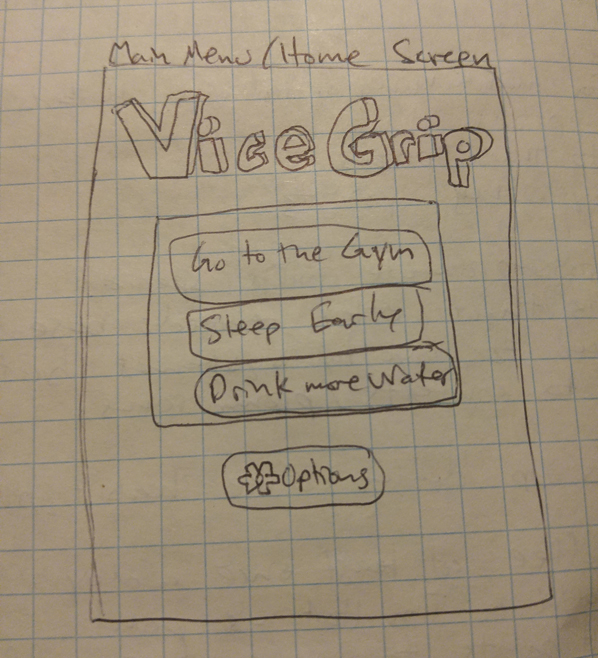 Main Menu/Home Screen
Vice Grip
Go to the Gym
Sleep Early
Drink more Water
Options